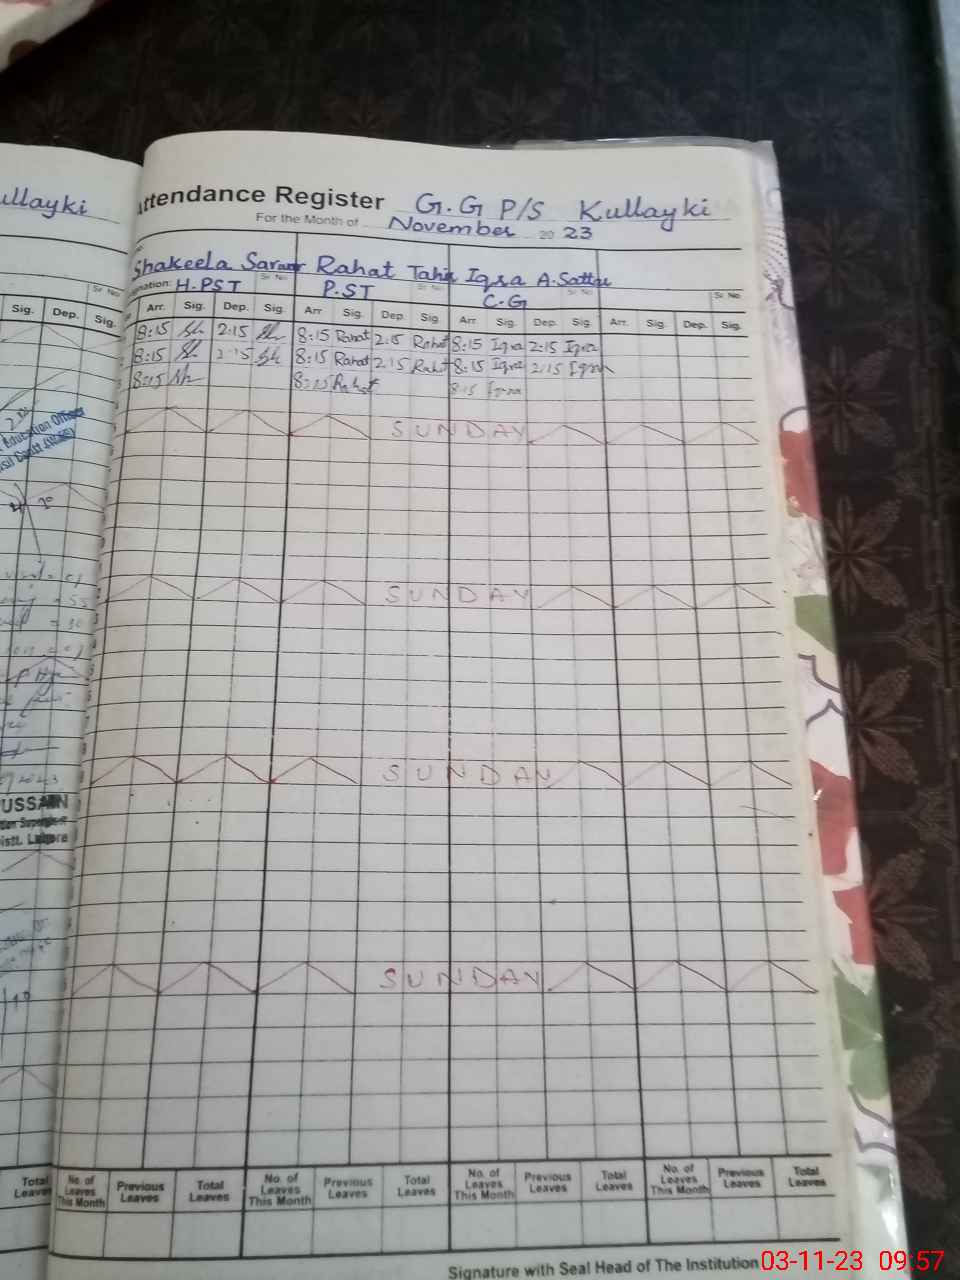 ullayki
Attendance Register G.G P/S Kullayki
For the Month of November 20 23
Shakeela Rahat Tahir Iqra A. Sattar
Sr No Sr No Sr No Sr No Sr No
nation: H.PST P.ST C.G
Sig. Dep. Sig. Arr. Sig. Dep. Sig. Arr Sig. Dep. Sig. Arr. Sig. Dep. Sig. Arr. Sig. Dep. Sig.
8:15 Sh 2:15 Sh 8:15 Rahat 2:15 Rahat 8:15 Iqra 2:15 Iqra
8:15 Sh 2:15 Sh 8:15 Rahat 2:15 Rahat 8:15 Iqra 2:15 Iqra
8:15 Sh 8:15 Rahat 8:15 Iqra
SUNDAY
Education Officer
SUNDAY
SUNDAY
USSAIN
Distt. Lahore
SUNDAY
Total Leaves No. of Leaves This Month Previous Leaves Total Leaves No. of Leaves This Month Previous Leaves Total Leaves No. of Leaves This Month Previous Leaves Total Leaves No. of Leaves This Month Previous Leaves Total Leaves
Signature with Seal Head of The Institution
03-11-23 09:57